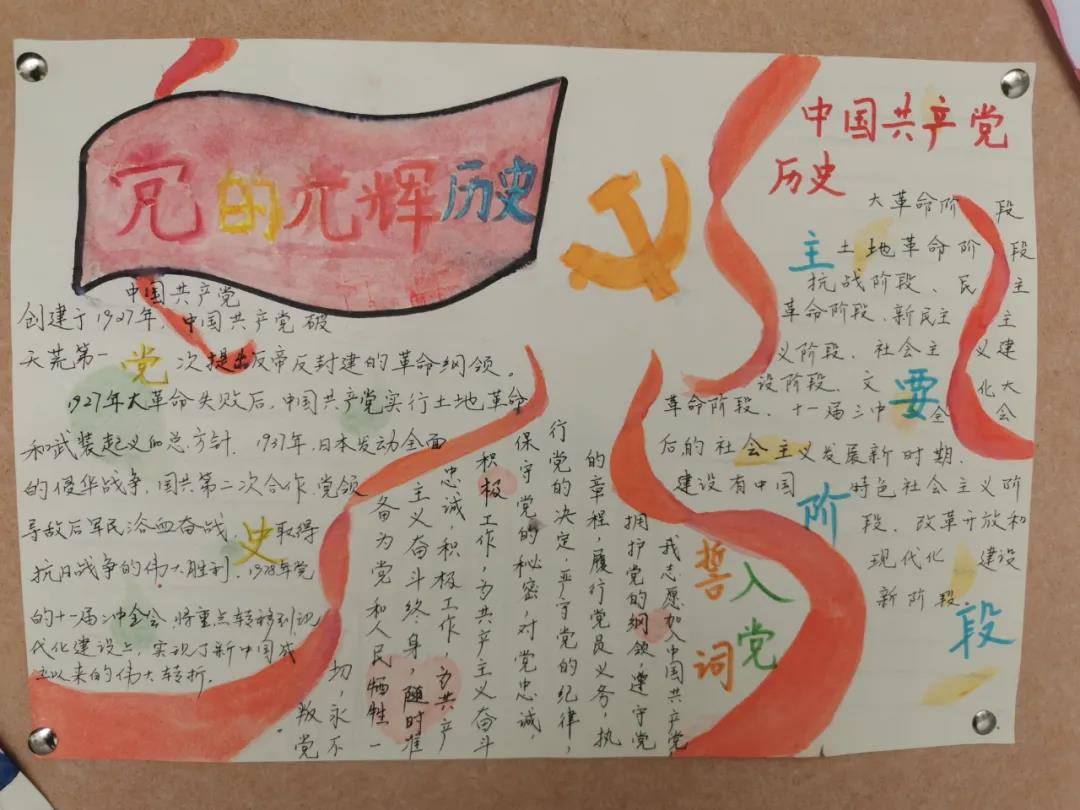 党的光辉历史
中国共产党
创建于1927年，中国共产党破
天荒第一次提出反帝反封建的革命纲领。
1927年大革命失败后，中国共产党实行土地革命
和武装起义的总方针．1937年，日本发动全面
的侵华战争，国共第二次合作．党领
导敌后军民浴血奋战，取得
抗日战争的伟大胜利．1978年党
的十一届三中全会将重点转移到现
代化建设上，实现了新中国成
立以来的伟大转折．
党
史
入党
誓词
我志愿加入中国共产党
拥护党的纲领，遵守党
的章程，履行党员义务，执
行党的决定，严守党的纪律，
保守党的秘密，对党忠诚
积极工作，为共产主义奋斗
忠诚，积极工作，为共产
主义奋斗终身，随时准
备为党和人民牺牲一
切，永不
叛党
中国共产党
历史
大革命阶段
土地革命阶段
抗战阶段、民主
革命阶段．新民主主
义阶段．社会主义建
设阶段．文化大
革命阶段．十一届三中全会
后的社会主义发展新时期．
建设有中国特色社会主义阶
段．改革开放和
现代化建设
新阶段．
主
要
阶
段